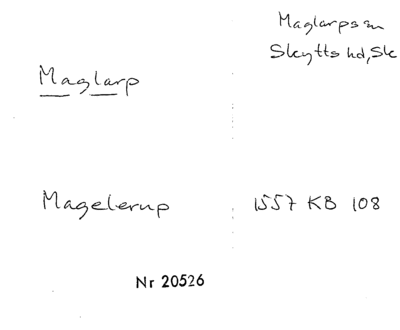 Maglarps sn
Skytts hd, Sk
Maglarp
Magelerup 1557 KB 108
Nr 20526